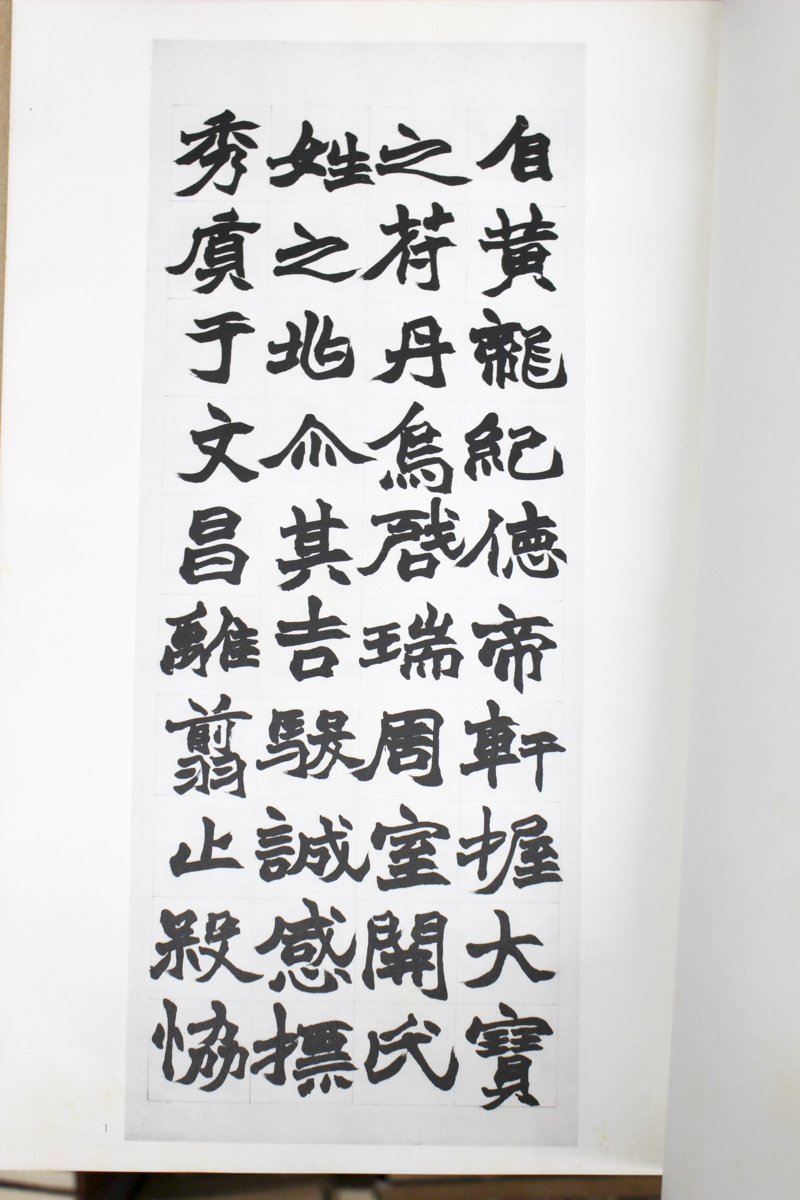 自黃龍紀德帝軒握大寶
之苻丹烏啓瑞周室開氏
姓之兆尒其吉駿誠感標
秀于文昌離翦止殺恊
1